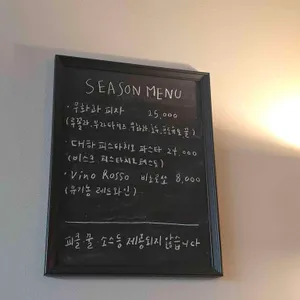 SEASON MENU
· 무화과 피자 25,000
(루꼴라, 부라타치즈 무화과
· 대하 피스타치오 파스타 24,000
(비스크 피스타치오페스토)
· Vino Rosso 8,000
(유기농 레드와인)
피클·물·소스등 제공되지 않습니다